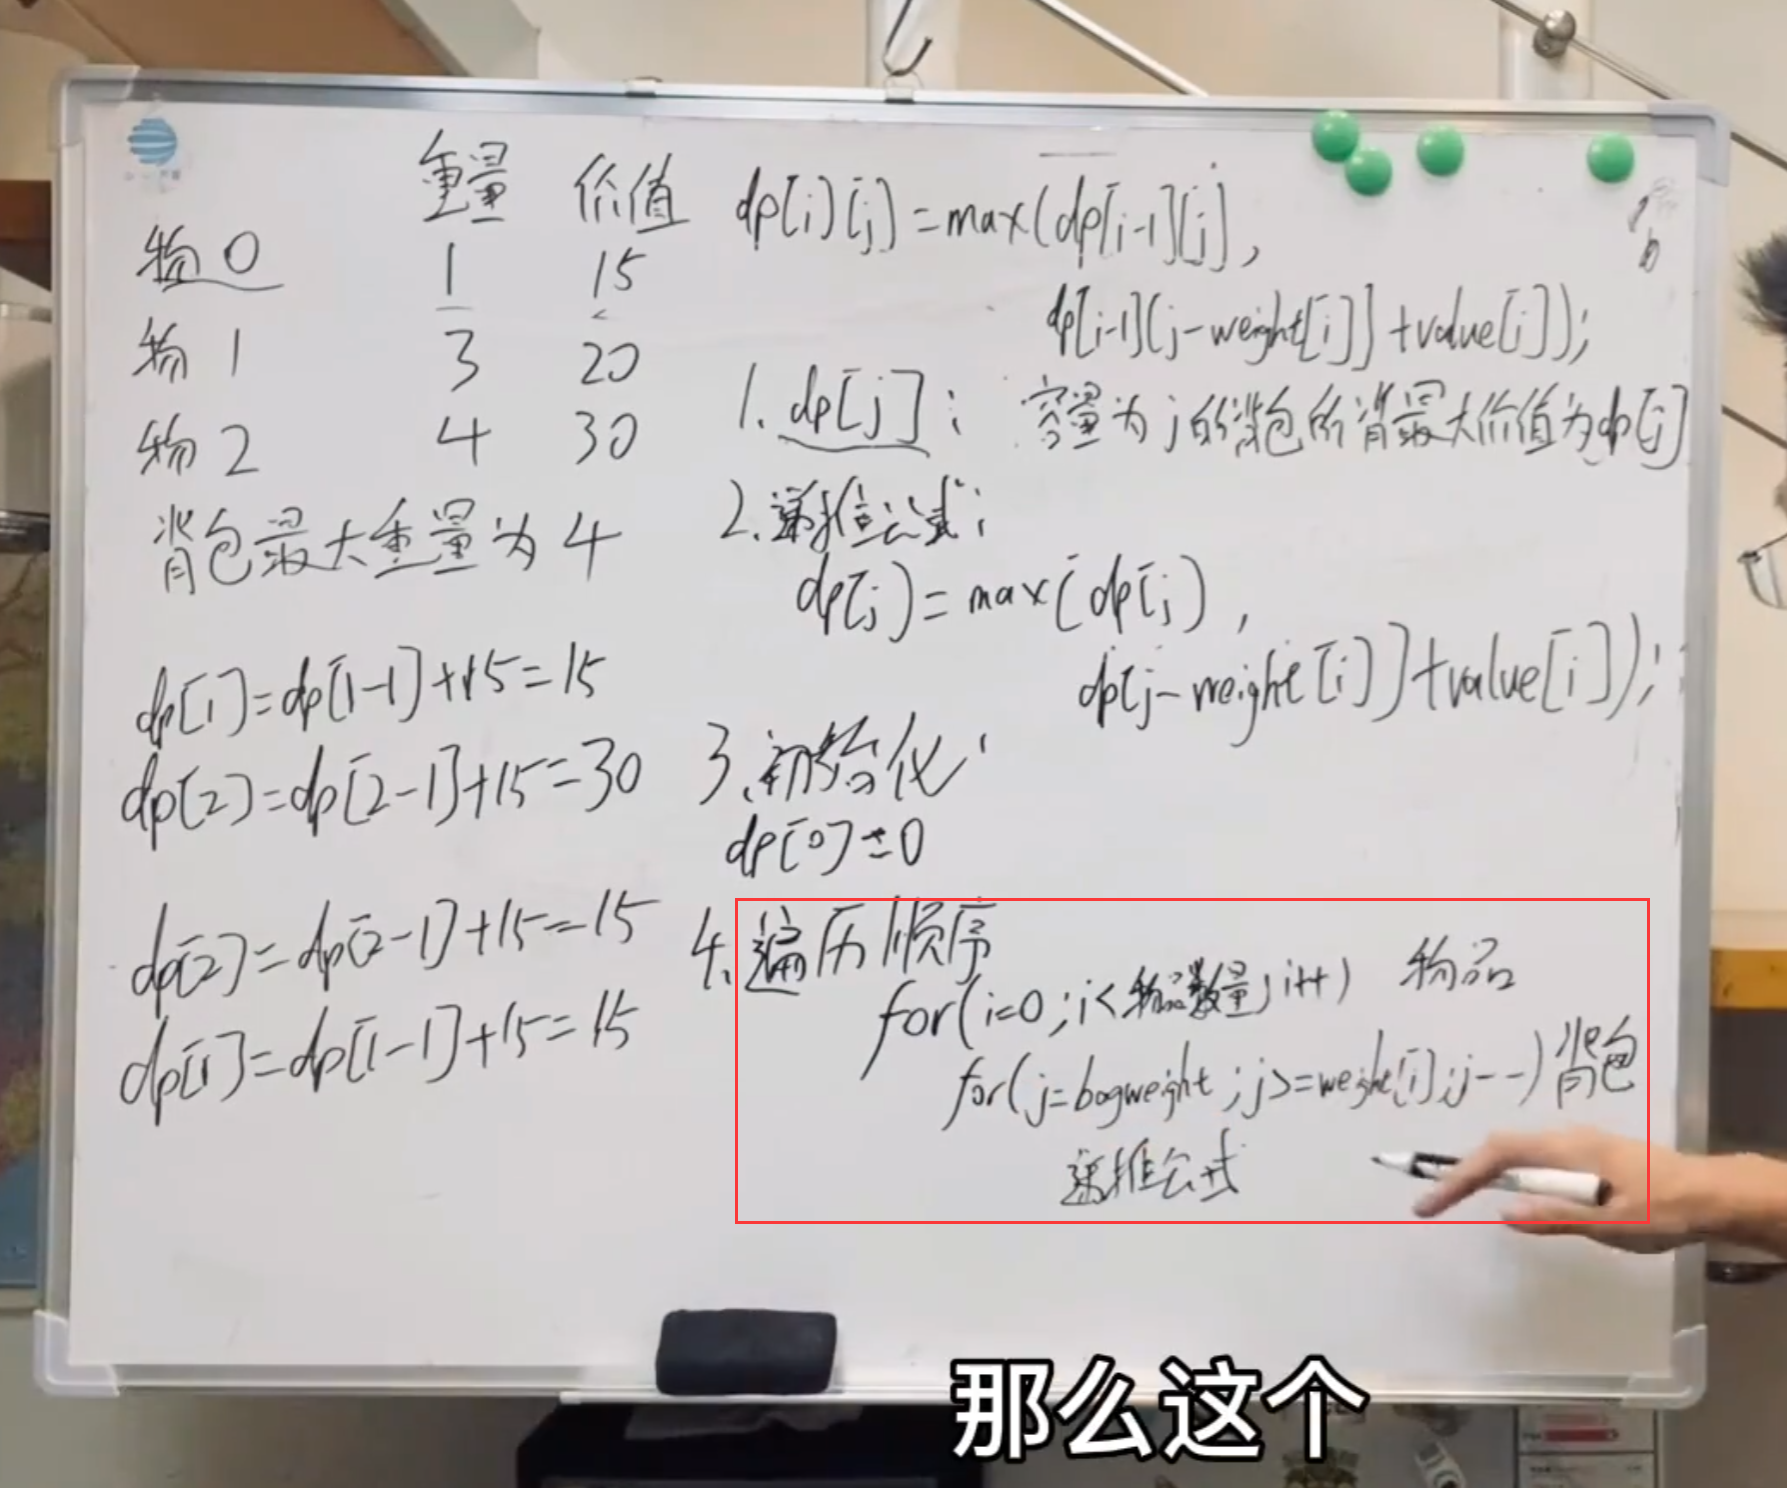 重量 价值
物0 1 15
物1 3 20
物2 4 30
背包最大重量为4
dp[1]=dp[1-1]+15=15
dp[2]=dp[2-1]+15=30
dp[2]=dp[2-1]+15=15
dp[1]=dp[1-1]+15=15
dp[i][j]=max(dp[i-1][j],
dp[i-1][j-weight[i]]+value[i]);
1. dp[j]: 容量为j的背包所背最大价值为dp[j]
2.递推公式:
dp[j]=max(dp[j],
dp[j-weight[i]]+value[i]);
3.初始化:
dp[0]=0
4.遍历顺序
for(i=0;i<物品数量;i++) 物品
for(j=bagweight;j>=weight[i];j--)背包
递推公式
那么这个